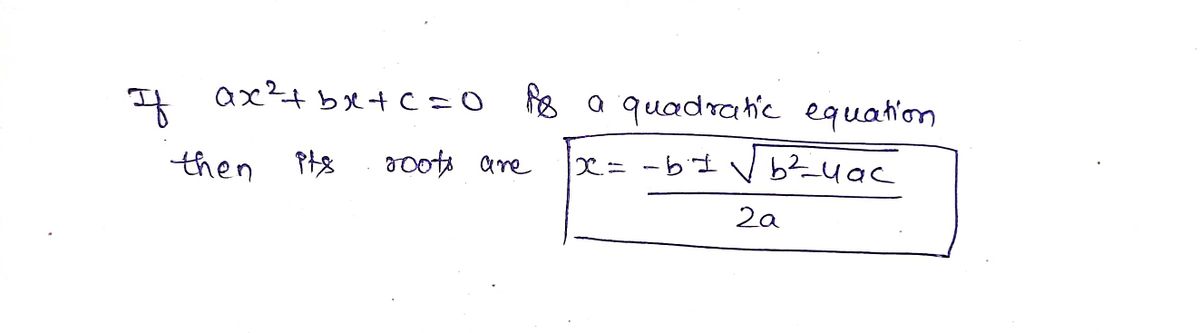 If ax²+bx+c=0 is a quadratic equation
then its roots are x = -b ± √b²-4ac / 2a